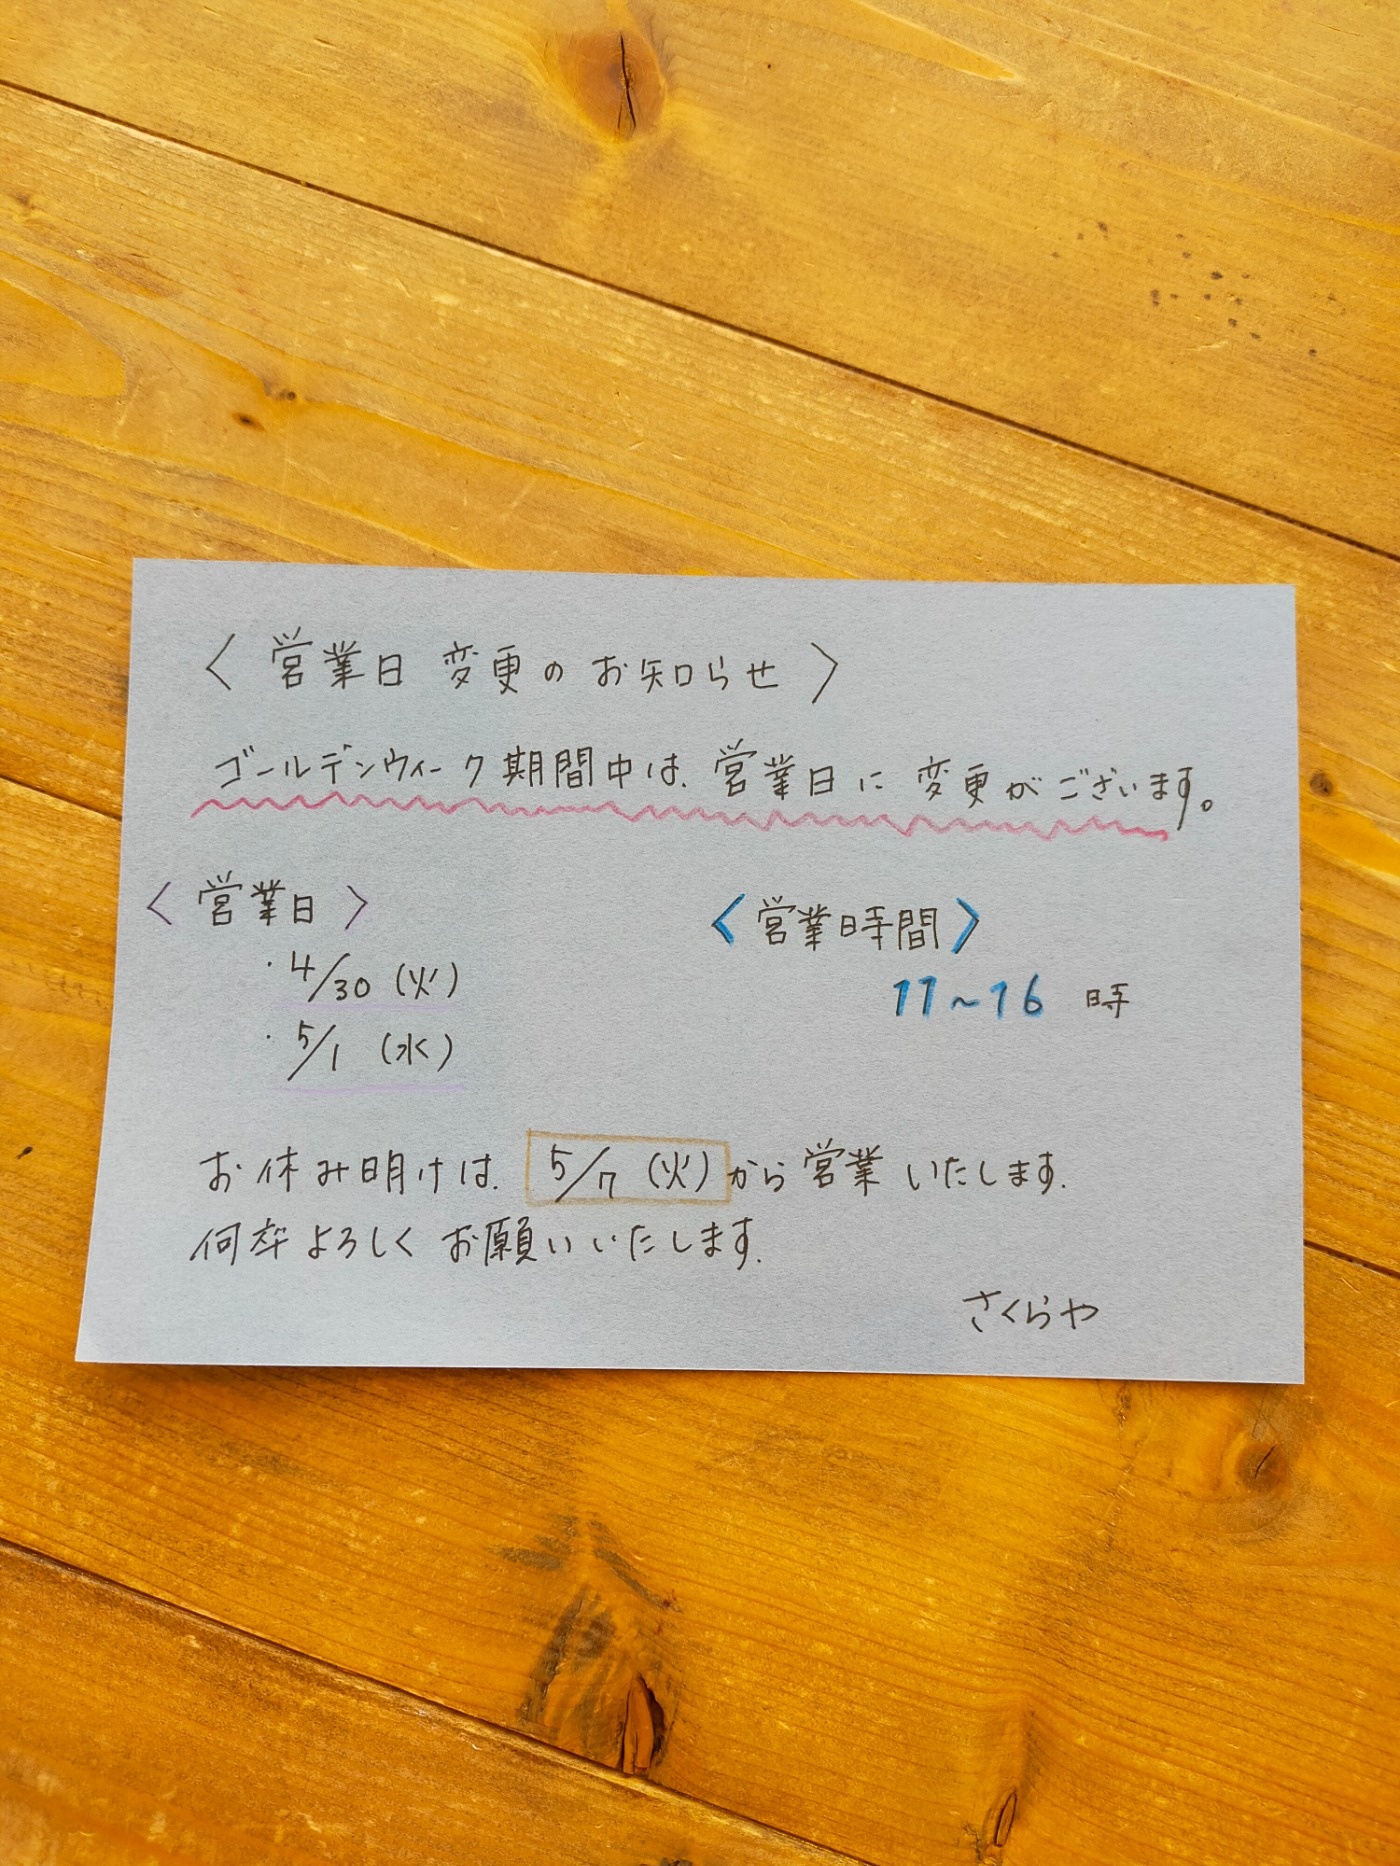 〈営業日変更のお知らせ〉
ゴールデンウィーク期間中は、営業日に変更がございます。
〈営業日〉
・4/30(火)
・5/1(水)
〈営業時間〉
11~16時
お休み明けは、5/7(火)から営業いたします。
何卒よろしくお願いいたします。
さくらや